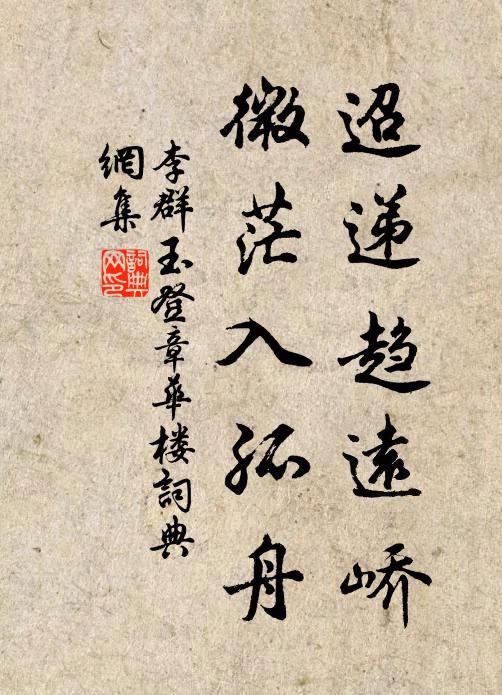 迢递趋遠峤
微茫入孤舟
李群玉登章華楼詞典
網集
詞典
网印